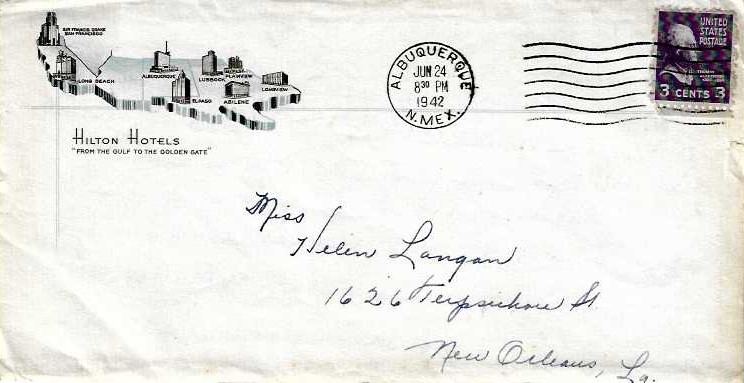 SIR FRANCIS DRAKE
SAN FRANCISCO
LONG BEACH
ALBUQUERQUE
LUBBOCK
PLAINVIEW
LONGVIEW
EL PASO
ABILENE
HILTON HOTELS
"FROM THE GULF TO THE GOLDEN GATE"
ALBUQUERQUE
JUN 24
8 30 PM
1942
N. MEX.
UNITED
STATES
POSTAGE
3 CENTS 3
Miss
Helen Langan
1626 Terpsichore St.
New Orleans, La.